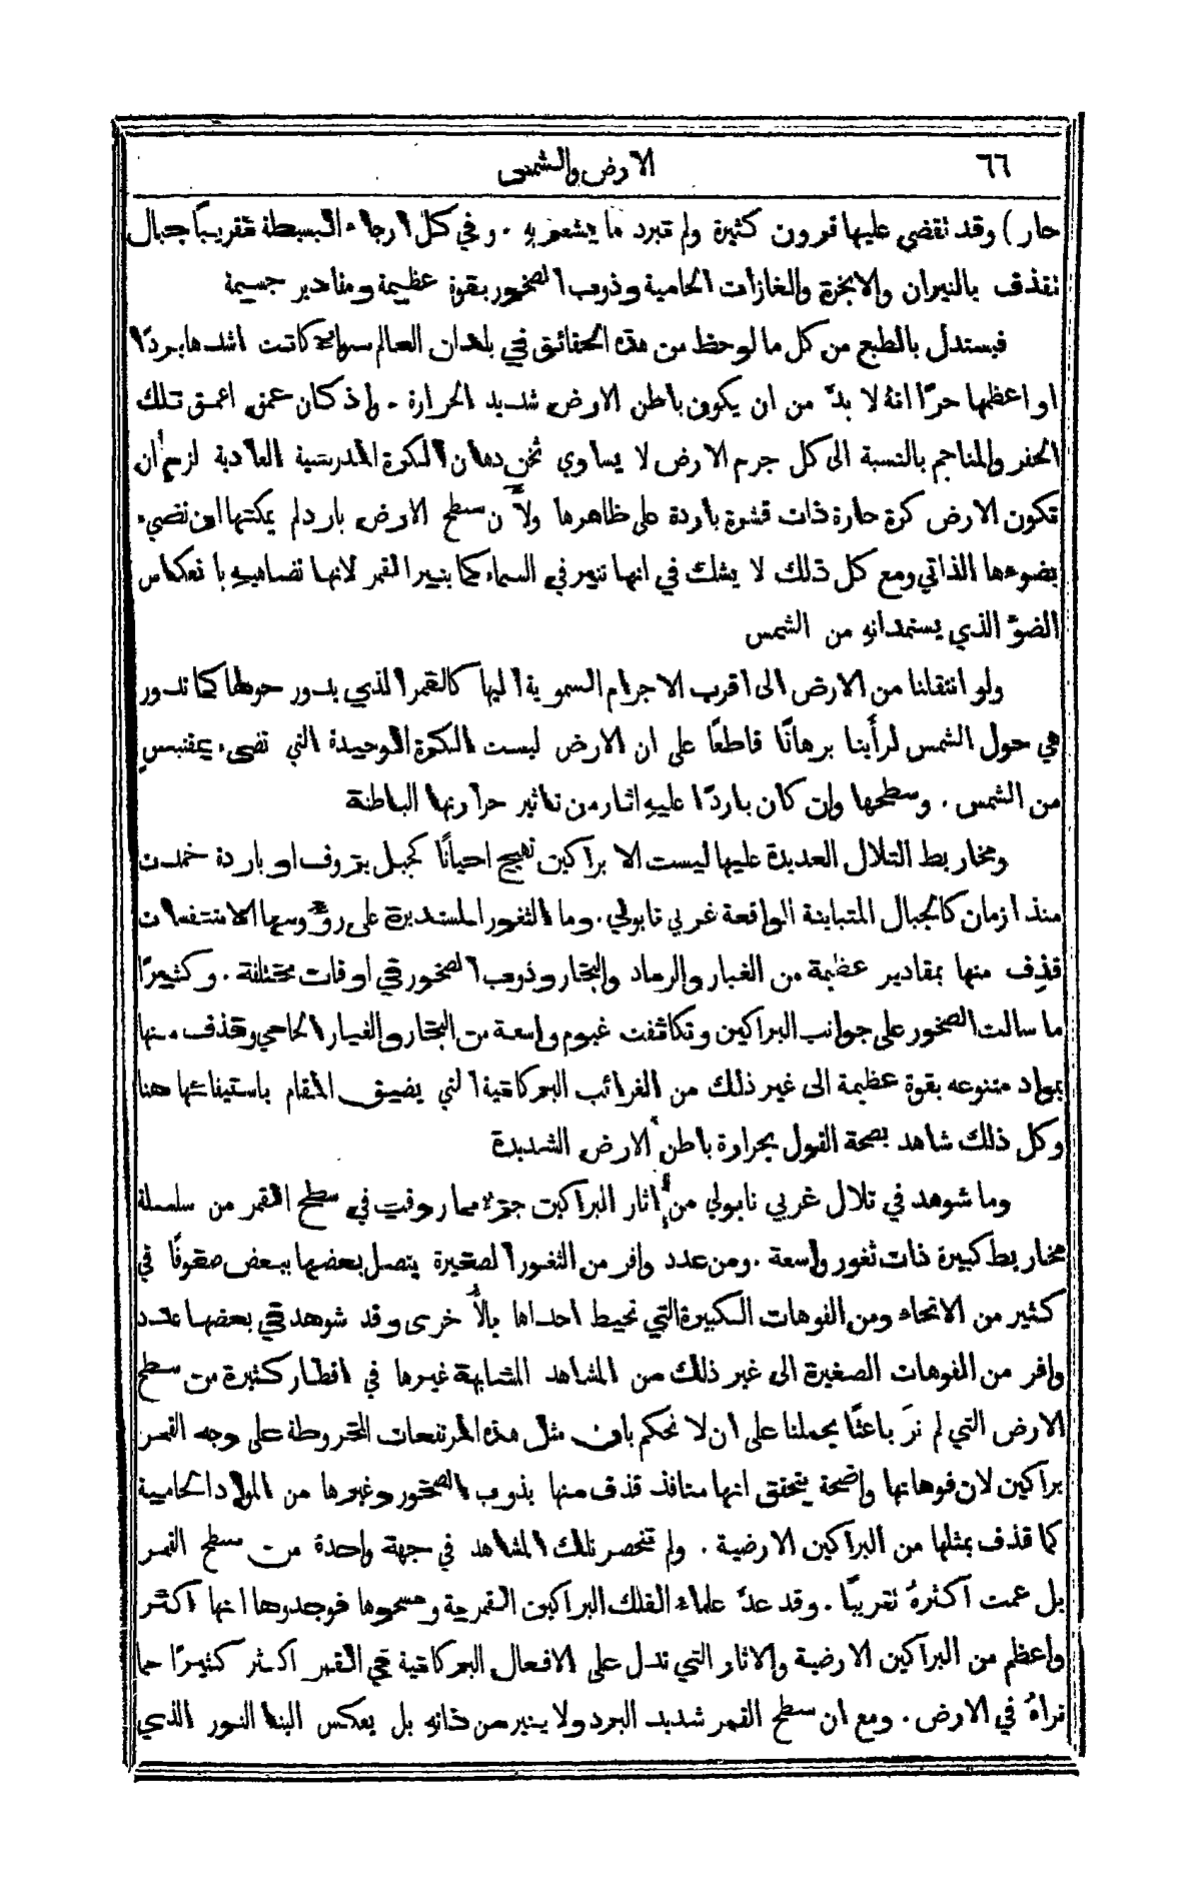 ٦٦
الارض والشمس
حار) وقد تقضي عليها قرون كثيرة ولم تبرد ما يشعر به . وفي كل ارجاء البسيطة تقريبًا جبال
تقذف بالنيران والابخرة والغازات الحامية وذوب الصخور بقوة عظيمة ومقادير جسيمة
فيستدل بالطبع من كل ما لوحظ من هذه الحقائق في بلدان العالم سواءٌ كانت اشدها بردًا
او اعظمها حرًّا انهُ لا بدَّ من ان يكون باطن الارض شديد الحرارة . واذ كان عمق اعمق تلك
الحفر والمناجم بالنسبة الى كل جرم الارض لا يساوي ثخن دهان الكرة المدرسية العادية لزم أن
تكون الارض كرة حارة ذات قشرة باردة على ظاهرها ولأَن سطح الارض بارد لم يمكنها ان تضيء
بضوءها الذاتي ومع كل ذلك لا يشك في انها تنير في السماء كما ينير القمر لانها تضاهيهِ بانعكاس
الضوّ الذي يستمدانهِ من الشمس
ولو انتقلنا من الارض الى اقرب الاجرام السموية اليها كالقمر الذي يدور حولها كما تدور
هي حول الشمس لرأَينا برهانًا قاطعًا على ان الارض ليست الكرة الوحيدة التي تضيء بمقتبسٍ
من الشمس . وسطحها وان كان باردًا عليهِ اثار من تاثير حرارتها الباطنة
ومخاريط التلال العديدة عليها ليست الا براكين تهيج احيانًا كجبل يزوف او باردة خمدت
منذ ازمان كالجبال المتباينة الواقعة غربي نابولي . وما الثغور المستديرة على رؤُوسها الا متنفسات
قُذِف منها بمقادير عظيمة من الغبار والرماد والبخار وذوب الصخور في اوقات مختلفة . وكثيرًا
ما سالت الصخور على جوانب البراكين وتكاثفت غيوم واسعة من البخار والغبار الحامي وقذف منها
بمواد متنوعه بقوة عظيمة الى غير ذلك من الغرائب البركانية التي يضيق المقام باستيفائها هنا
وكل ذلك شاهد بصحة القول بحرارة باطن الارض الشديدة
وما شوهد في تلال غربي نابولي من آثار البراكين جزءٌ مما روقب في سطح القمر من سلسلة
مخاريط كبيرة ذات ثغور واسعة . ومن عدد وافر من الثغور الصغيرة يتصل بعضها ببعض صفوفًا في
كثير من الانحاء ومن الفوهات الكبيرة التي تحيط احداها بالأُخرى وقد شوهد في بعضها عدد
وافر من الفوهات الصغيرة الى غير ذلك من المشاهد المشابهة غيرها في اقطار كثيرة من سطح
الارض التي لم نرَ باعثًا يحملنا على ان لا نحكم بان مثل هذه المرتفعات المخروطة على وجه القمر
براكين لان فوهاتها واضحة يتحقق انها منافذ قذف منها بذوب الصخور وغيرها من المواد الحامية
كما قذف بمثلها من البراكين الارضية . ولم تنحصر تلك المشاهد في جهة واحدة من سطح القمر
بل عمت اكثرهُ تقريبًا . وقد عدَّ علماء الفلك البراكين القمرية ومسحوها فوجدوها انها اكثر
واعظم من البراكين الارضية والاثار التي تدل على الافعال البركانية في القمر اكثر كثيرًا مما
نراهُ في الارض . ومع ان سطح القمر شديد البرد ولا ينير من ذاتهِ بل يعكس الينا النور الذي